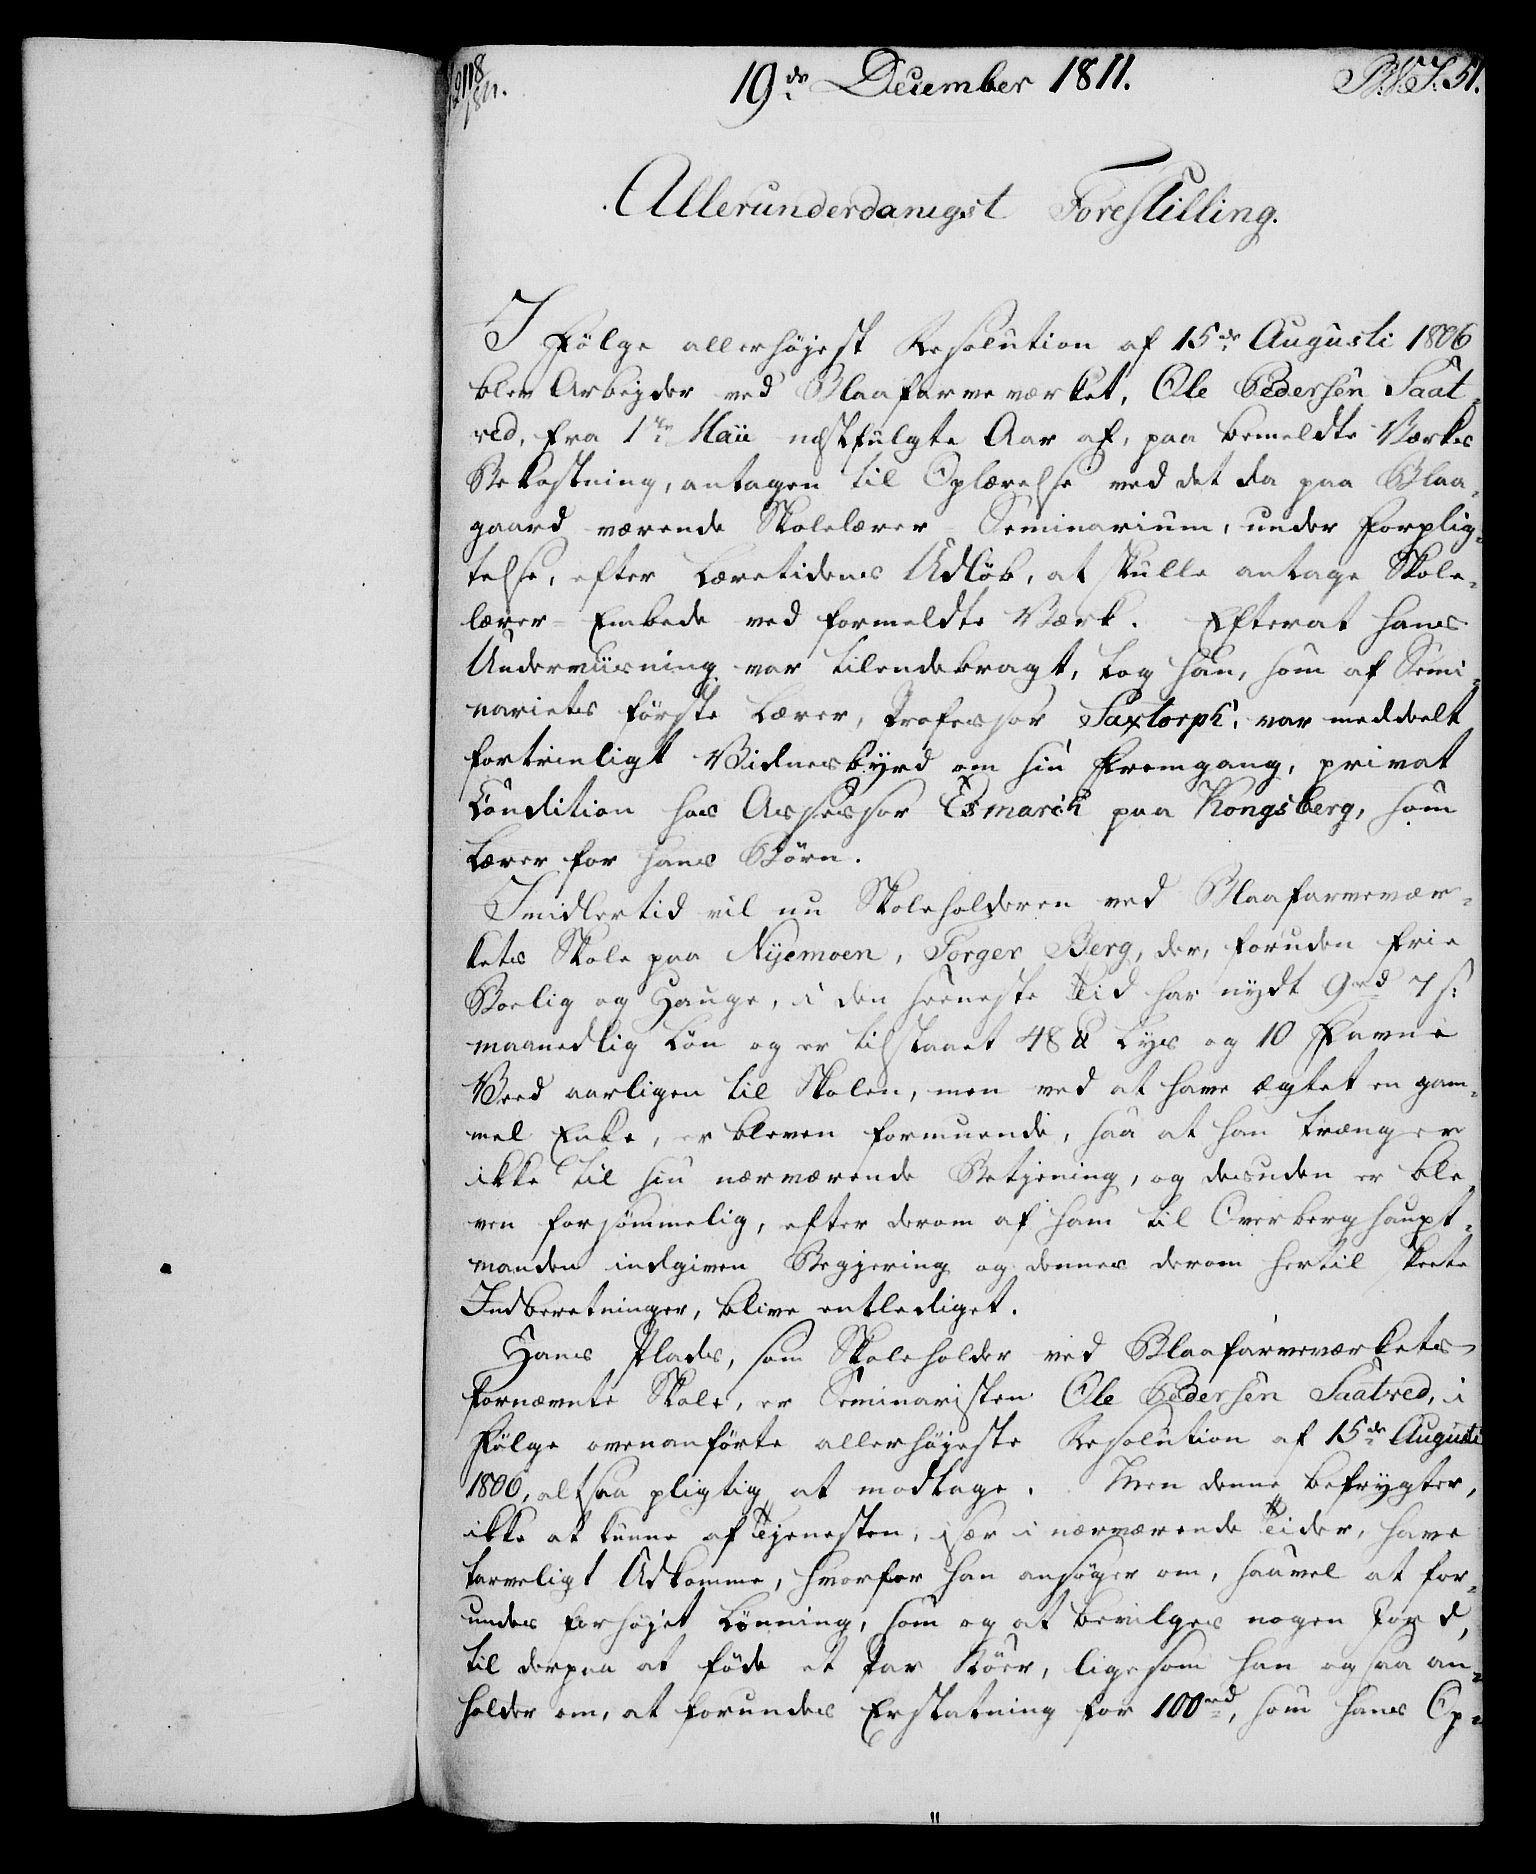 2118
1811.
19de December 1811.
51.
Allerunderdanigst Forestilling.
I Følge allerhøjest Resolution af 15de Augusti 1806
blev Arbejder ved Blaafarveværket, Ole Pedersen Saat-
red, fra 1ste Maii næstfulgte Aar af, paa bemeldte Værks
Bekostning, antagen til Oplærelse ved det da paa Blaa-
gaard værende Skolelærer-Seminarium, under Forplig-
telse, efter Læretidens Udløb, at skulle antage Skole-
lærer-Embede ved formeldte Værk. Efterat hans
Underviisning var tilendebragt, tog han, som af Semi-
nariets første Lærer, Professor Saxtorph, var meddeelt
fortrinligt Vidnesbyrd om sin Fremgang, privat
Condition hos Assessor Esmarch paa Kongsberg, som
Lærer for hans Børn.
Imidlertid vil nu Skoleholderen ved Blaafarvevær-
kets Skole paa Nyemoen, Torger Berg, der, foruden frie
Boelig og Hauge, i den seeneste Tid har nydt 9 rd 7 s:
maanedlig Løn og er tilstaaet 48 ℔ Lys og 10 Favne
Veed aarligen til Skolen, men ved at have ægtet en gam-
mel Enke, er bleven formuende, saa at han trænger
ikke til sin nærværende Betjening, og desuden er ble-
ven forsømmelig, efter derom af ham til Overberghaupt-
manden indgiven Begjering og dennes derom hertil skeete
Indberetninger, blive entlediget.
Hans Plads, som Skoleholder ved Blaafarveværkets
fornævnte Skole, er Seminaristen Ole Pedersen Saatred, i
Følge ovenanførte allerhøjeste Resolution af 15de Augusti
1806, altsaa pligtig at modtage. Men denne befrygter,
ikke at kunne af Tjenesten, især i nærværende Tider, have
tarveligt Udkomme, hvorfor han ansøger om, saavel at for-
undes forhøjet Lønning, som og at bevilges nogen Jord,
til derpaa at føde et Par Køer, ligesom han ogsaa an-
holder om, at forundes Erstatning for 100 rd, som hans Op-